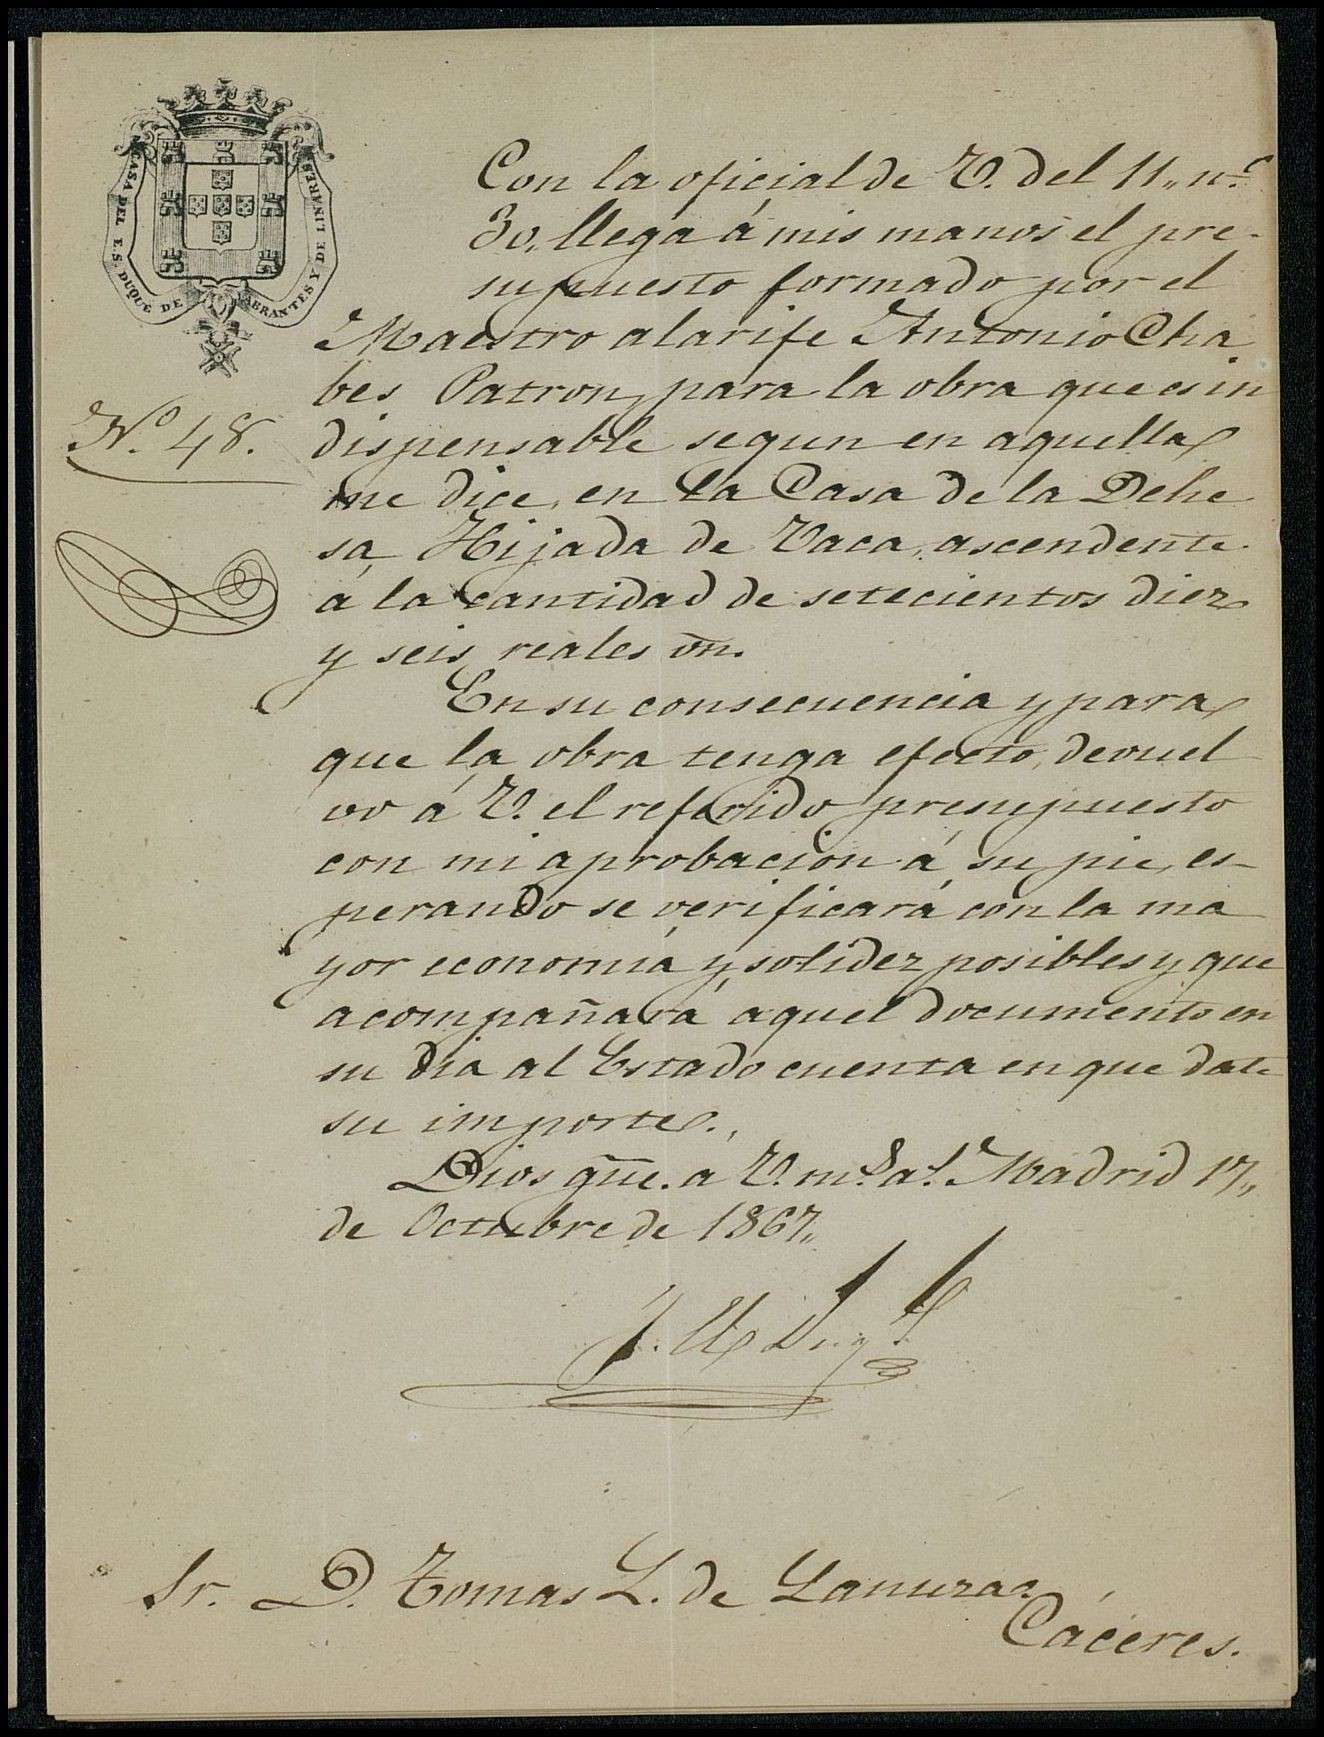 CASA DEL E. S. DUQUE DE ABRANTES Y DE LINARES
Con la oficial de V. del 11,, n.º
30, llega á mis manos el pre-
supuesto formado por el
Maestro alarife Antonio Cha
bes Patron, para la obra que es in
dispensable segun en aquella
me dice, en la Casa de la Dehe
sa, Hijada de Vaca, ascendente
á la cantidad de setecientos diez
y seis reales vn.
Nº 48.
En su consecuencia y para
que la obra tenga efecto, devuel
vo á V. el referido presupuesto
con mi aprobacion á su pie, es-
perando se verificará con la ma
yor economia y solidez posibles y que
acompañará aquel documento en
su dia al Estado cuenta en que date
su importe.,
Dios gue. a V. m.s a.s Madrid 17,,
de Octubre de 1867,,
Sr. D. Tomas L. de Lanuza.
Cáceres.